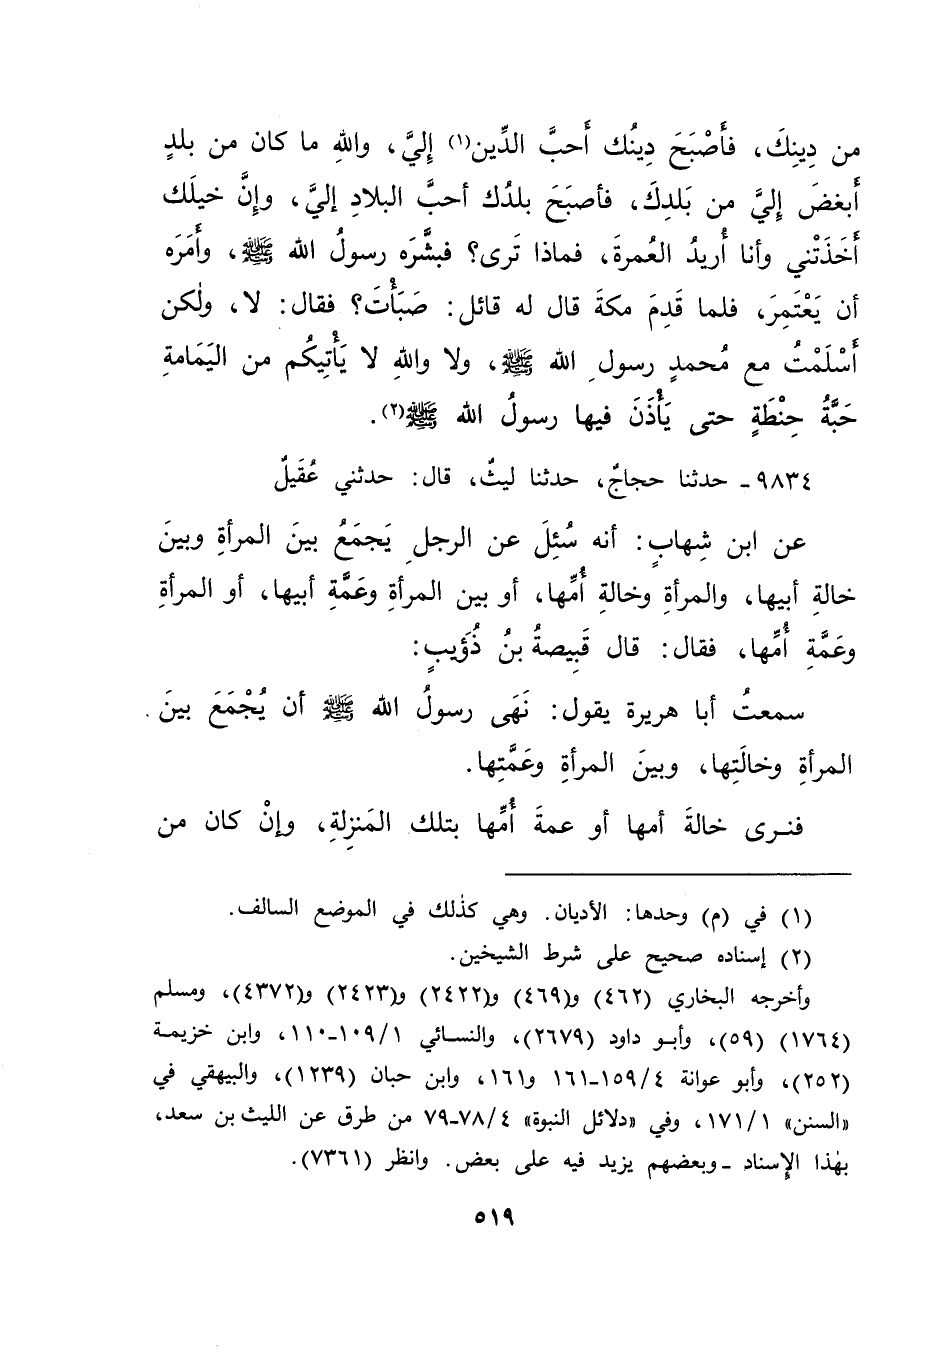 من دِينِكَ، فأَصْبَحَ دِينُك أَحبَّ الدِّين(١) إِليَّ، واللهِ ما كان من بلدٍ
أَبغضَ إِليَّ من بَلدِكَ، فأصبَحَ بلدُك أحبَّ البلادِ إليَّ، وإِنَّ خيلَك
أَخَذَتْني وأنا أُريدُ العُمرةَ، فماذا تَرى؟ فبشَّرَه رسولُ الله ﷺ، وأَمَرَه
أن يَعْتَمِرَ، فلما قَدِمَ مكةَ قال له قائل: صَبَأْتَ؟ فقال: لا، ولٰكن
أَسْلَمْتُ مع مُحمدٍ رسولِ الله ﷺ، ولا واللهِ لا يَأْتِيكُم من اليَمَامةِ
حَبَّةُ حِنْطَةٍ حتى يَأْذَنَ فيها رسولُ الله ﷺ(٢).
٩٨٣٤ـ حدثنا حجاجٌ، حدثنا ليثٌ، قال: حدثني عُقَيلٌ
عن ابن شِهابٍ: أنه سُئِلَ عن الرجلِ يَجمَعُ بينَ المرأةِ وبينَ
خالةِ أبيها، والمرأةِ وخالةِ أُمِّها، أو بين المرأةِ وعَمَّةِ أبيها، أو المرأةِ
وعَمَّةِ أُمِّها، فقال: قال قَبِيصةُ بنُ ذُؤَيبٍ:
سمعتُ أبا هريرة يقول: نَهَى رسولُ الله ﷺ أن يُجْمَعَ بينَ
المرأةِ وخالَتِها، وبينَ المرأةِ وعَمَّتِها.
فنـرى خالةَ أمها أو عمةَ أُمِّها بتلك المَنزِلةِ، وإنْ كان من
(١) في (م) وحدها: الأديان. وهي كذٰلك في الموضع السالف.
(٢) إسناده صحيح على شرط الشيخين.
وأخرجه البخاري (٤٦٢) و(٤٦٩) و(٢٤٢٢) و(٢٤٢٣) و(٤٣٧٢)، ومسلم
(١٧٦٤) (٥٩)، وأبـو داود (٢٦٧٩)، والنسـائي ١٠٩/١-١١٠، وابن خزيمـة
(٢٥٢)، وأبو عوانة ١٥٩/٤-١٦١ و١٦١، وابن حبان (١٢٣٩)، والبيهقي في
«السنن» ١٧١/١، وفي «دلائل النبوة» ٧٨/٤-٧٩ من طرق عن الليث بن سعد،
بهٰذا الإِسناد ـ وبعضهم يزيد فيه على بعض. وانظر (٧٣٦١).
٥١٩